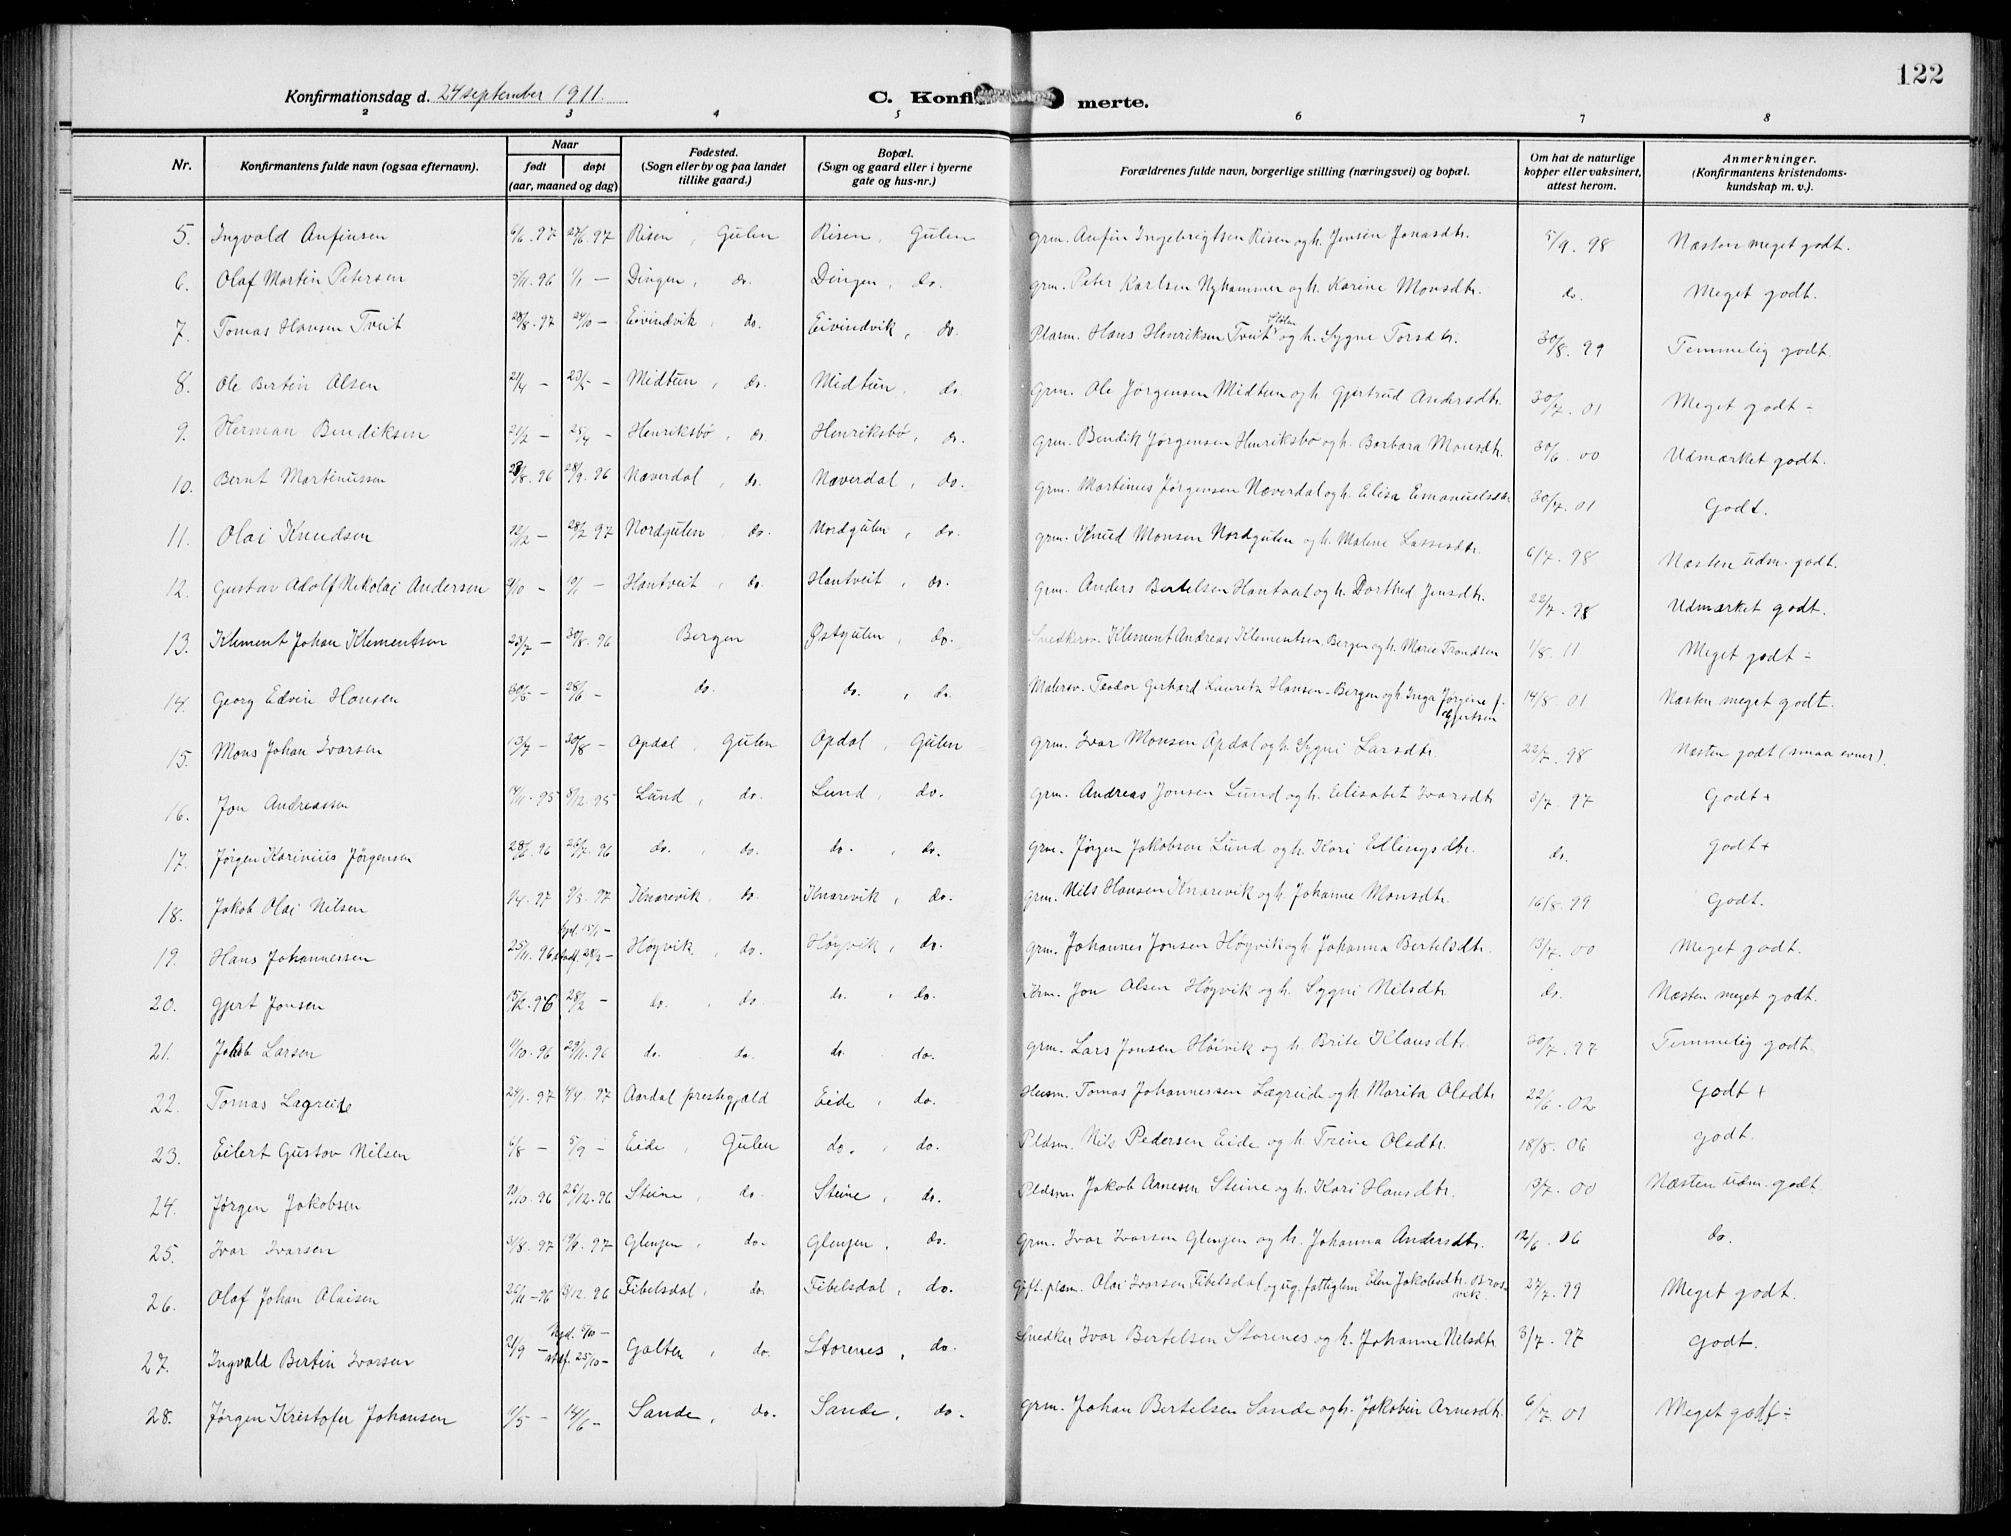 122
Konfirmationsdag d. 24 september 1911.
C. Konfi merte.
2 3 4 5 6 7 8
Nr. Konfirmantens fulde navn (ogsaa efternavn). Naar født døpt (aar, maaned og dag) Fødested. (Sogn eller by og paa landet tillike gaard.) Bopæl. (Sogn og gaard eller i byerne gate og hus-nr.) Forældrenes fulde navn, borgerlige stilling (næringsvei) og bopæl. Om hat de naturlige kopper eller vaksinert, attest herom. Anmerkninger. (Konfirmantens kristendoms-kundskap m. v.).
5. Ingvald Anfinsen 6/6 97 27/6 97 Risen, Gulen Risen, Gulen Grm. Anfin Ingebrigtsen Risen og h. Jensen Jonasdtr. 5/9. 98 Næsten meget godt.
6. Olaf Martin Petersen 5/11. 96 1/1 — Dingen, do. Dingen, do. Grm. Peter Karlsen Nyhammer og h. Karine Monsdtr. do. Meget godt.
7. Tomas Hansen Tveit 28/8. 97 24/10 — Eivindvik, do. Eivindvik, do. Plasm. Hans Henriksen Tveit og h. Sygne Torsdtr. 30/8. 99 Temmelig godt.
8. Ole Bertin Olsen 21/4 — 23/5 — Midtun, do. Midtun, do. Grm. Ole Jørgensen Midtun og h. Gjertrud Andersdtr. 30/7. 01 Meget godt ÷
9. Herman Bendiksen 21/2 — 25/4 — Henriksbø, do. Henriksbø, do. Grm. Bendik Jørgensen Henriksbø og h. Barbara Monsdtr. 30/6. 00 Udmærket godt.
10. Bernt Martinussen 23/8. 96 28/9. 96 Næverdal, do. Næverdal, do. Grm. Martinus Jørgensen Næverdal og h. Elisa Emanuelsdtr 30/7. 01 Godt.
11. Olai Knudsen 22/12 — 28/2 97 Nordgulen, do. Nordgulen, do. Grm. Knud Monsen Nordgulen og h. Malene Lassesdtr. 6/7. 98 Næsten udm. godt.
12. Gustav Adolf Nikolai Andersen /10 — 10/1 — Hantveit, do. Hantveit, do. Grm. Anders Bertelsen Hantveit og h. Dorthed Jensdtr. 22/7. 98 Udmærket godt.
13. Klement Johan Klementsen 23/7 — 30/8. 96 Bergen Østgulen, do. Snedkersv. Klement Andreas Klementsen, Bergen og h. Marie Trondsen 1/8. 11 Meget godt ÷
14. Georg Edvin Hansen 30/5 — 28/6 — do. do. , do. Malersv. Teodor Gerhard Lauritz Hansen - Bergen og h. Inga Jørgine f. Gjertsen 14/8. 01 Næsten meget godt.
15. Mons Johan Ivarsen 13/7 — 30/8 — Opdal, Gulen Opdal, Gulen Grm. Ivar Monsen Opdal og h. Sygni Larsdtr. 22/7. 98 Næsten godt (smaa evner).
16. Jon Andreassen 14/11. 95 8/12 95 Lund, do. Lund, do. Grm. Andreas Jonsen Lund og h. Elisabet Ivarsdtr 3/7. 97 Godt +
17. Jørgen Karinius Jørgensen 28/6. 96 26/7. 96 do. , do. do. , do. Grm. Jørgen Jakobsen Lund og h. Kari Ellingsdtr. do. Godt +
18. Jakob Olai Nilsen 1/4. 97 9/5. 97 Knarevik, do. Knarevik, do. Grm. Nils Hansen Knarevik og h. Johanne Monsdtr. 16/8. 99 Godt.
19. Hans Johannessen 25/11. 96 hjd. 15/1 — stadf. 28/2 — Høyvik, do. Høyvik, do. Grm. Johannes Jonsen Høyvik og h. Johanna Bertelsdtr. 13/7. 00 Meget godt.
20. Gjert Jonsen 15/12. 96 28/2 — do. , do. do. , do. Grm. Jon Olsen Høyvik og h. Sygni Nilsdtr. do. Næsten meget godt.
21. Jakob Larsen 1/10. 96 29/11. 96 do. do. do. do. Grm. Lars Jonsen Høivik og h. Brite Klausdtr. 30/7. 97 Temmelig godt.
22. Tomas Lægreide 24/1. 97 4/4 97 Aardal prestegjæld Eide, do. Husm. Tomas Johannessen Lægreide og h. Marita Olsdtr. 22/6. 02 Godt +
23. Eilert Gustav Nilsen 6/8 — 5/9 — Eide, Gulen do. , do. Pldsm. Nils Pedersen Eide og h. Trine Olsdtr. 18/8. 06 Godt.
24. Jørgen Jakobsen 10/10. 96 25/12. 96 Steine, do. Steine, do. Pldsm. Jakob Arnesen Steine og h. Kari Hansdtr. 13/7. 00 Næsten udm. godt
25. Ivar Ivarsen 3/8. 97 19/9. 97 Glenjen, do. Glenjen, do. Grm. Ivar Ivarsen Glenjen og h. Johanna Andersdtr. 12/6. 06 do.
26. Olaf Johan Olaisen 26/11 — 96 13/12. 96 Fibelsdal, do. Fibelsdal, do. Gift. plsm. Olai Ivarsen Fibelsdal og ug. fattiglem Elen Jakobsdtr. Brosvik. 27/7. 99 Meget godt.
27. Ingvald Bertin Ivarsen 21/9 — hjd. 5/10 — stdf. 25/10 — Galten, do. Storenes, do. Snedker Ivar Bertelsen Storenes og h. Johanne Nilsdtr. 3/7. 97 Godt.
28. Jørgen Kristofer Johansen 1/5 — 14/6 — Sande, do. Sande, do. Grm. Johan Bertelsen Sande og h. Jakobin Arnesdtr. 6/7. 01 Meget godt ÷